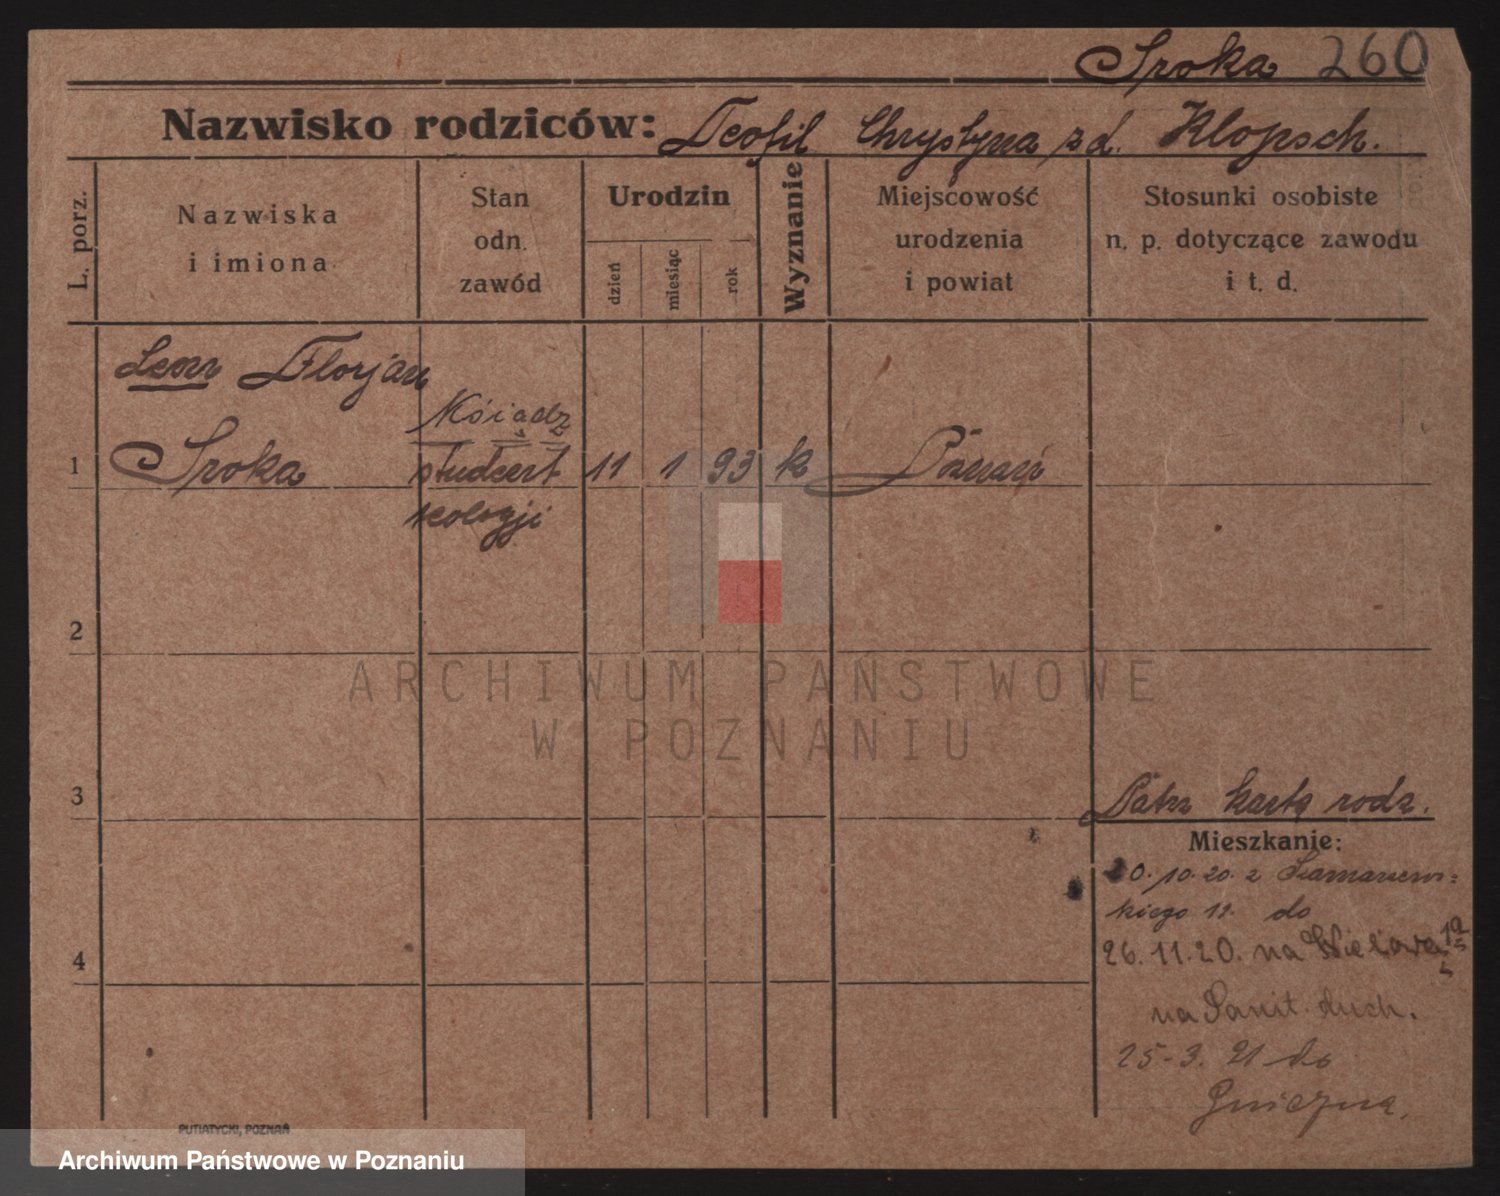 Sroka 260
Nazwisko rodziców: Teofil Chrystyna z d. Klopsch.
L. porz.
Nazwiska
i imiona
Stan
odn.
zawód
Urodzin
dzień
miesiąc
rok
Wyznanie
Miejscowość
urodzenia
i powiat
Stosunki osobiste
n. p. dotyczące zawodu
i t. d.
Leon Florjan
1 Sroka
student
teologji
11 1 93 k Poznań
2
3
4
Patrz kartę rodz.
Mieszkanie:
20.10.20. z
kiego 12. do
26.11.20. na
na duch.
25-3. 21 do
Gniezna.
PUTIATYCKI, POZNAŃ
ARCHIWUM PAŃSTWOWE
W POZNANIU
Archiwum Państwowe w Poznaniu